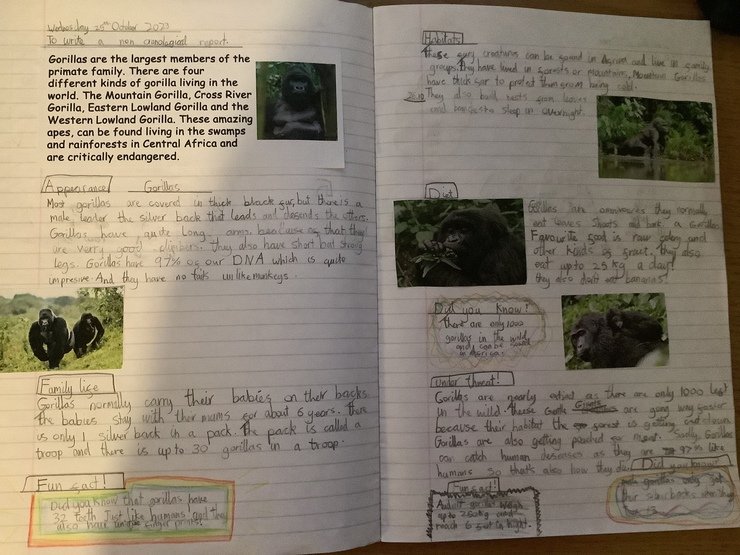 Wednesday 25th October 2023
To write a non cronological report.
Gorillas are the largest members of the
primate family. There are four
different kinds of gorilla living in the
world. The Mountain Gorilla, Cross River
Gorilla, Eastern Lowland Gorilla and the
Western Lowland Gorilla. These amazing
apes, can be found living in the swamps
and rainforests in Central Africa and
are critically endangered.
Appearance Gorillas
Most gorillas are covered in thick black fur, but there is a
male leader the silver back that leads and defends the others.
Gorillas have quite long arms. because of that they
are verry good climbers. They also have short but strong
legs. Gorillas have 97% of our DNA which is quite
impresive. And they have no tails unlike monkeys.
Family life
Gorillas normally carry their babies on their backs.
The babies stay with their mums for about 6 years. There
is only 1 silver back in a pack. The pack is called a
troop and there is up to 30 gorillas in a troop.
Fun fact!
Did you know that gorillas have
32 teeth Just like humans and they
also have unique finger prints!
Habitats
These furry creatures can be found in Africa and live in family
groups. They have lived in forests or mountains. Mountain Gorillas
have thick fur to protect them from being cold.
26.10 They also build nests from leaves
and branches to sleep in overnight.
Diet
Gorillas are omnivores they normally
eat leaves shoots and bark. a Gorillas
Favourite food is raw celery and
other kinds of fruit. they also
eat up to 25 kg a day!
they also don't eat bananas!
Did you know?
there are only 1000
gorillas in the wild
and can be found
in africa.
Under threat!
Gorillas are nearly extinct as there are only 1000 left
in the wild. These Gentle Giants are going way faster
because their habitat the forest is getting cut down.
Gorillas are also getting poached for meat. Sadly, Gorillas
can catch human deseases as they are 97% like
humans so that's also how they die.
Did you know
male gorillas only get
their silver backs when they
Fun fact!
Adult gorillas weigh
up to 250kg and
reach 6 foot in hight.